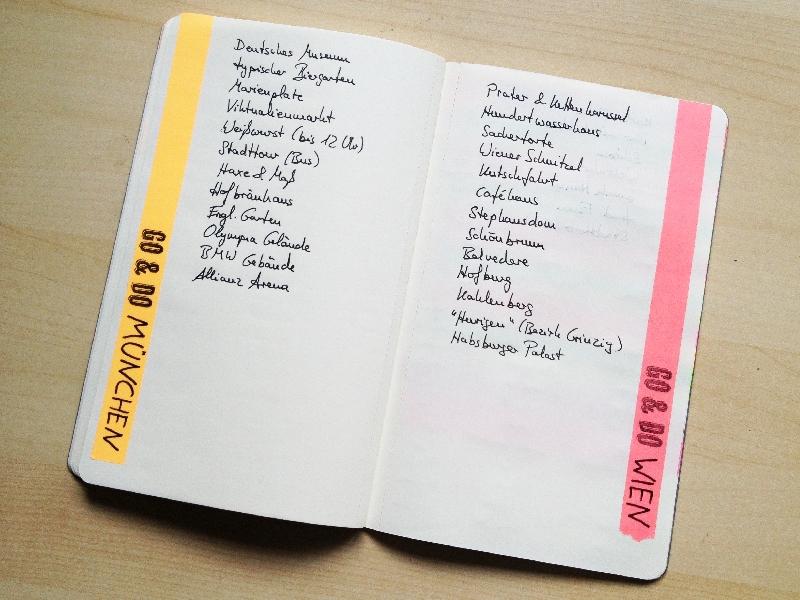 Deutsches Museum
typischer Biergarten
Marienplatz
Viktualienmarkt
Weißwurst (bis 12 Uhr)
Stadttour (Bus)
Haxe & Maß
Hofbräuhaus
Engl. Garten
Olympia Gelände
BMW Gebäude
Allianz Arena
GO & DO MÜNCHEN
Prater & Kettenkarussel
Hundertwasserhaus
Sachertorte
Wiener Schnitzel
Kutschfahrt
Caféhaus
Stephansdom
Schönbrunn
Belvedere
Hofburg
Kahlenberg
"Heurigen" (Bezirk Grinzig)
Habsburger Palast
GO & DO WIEN